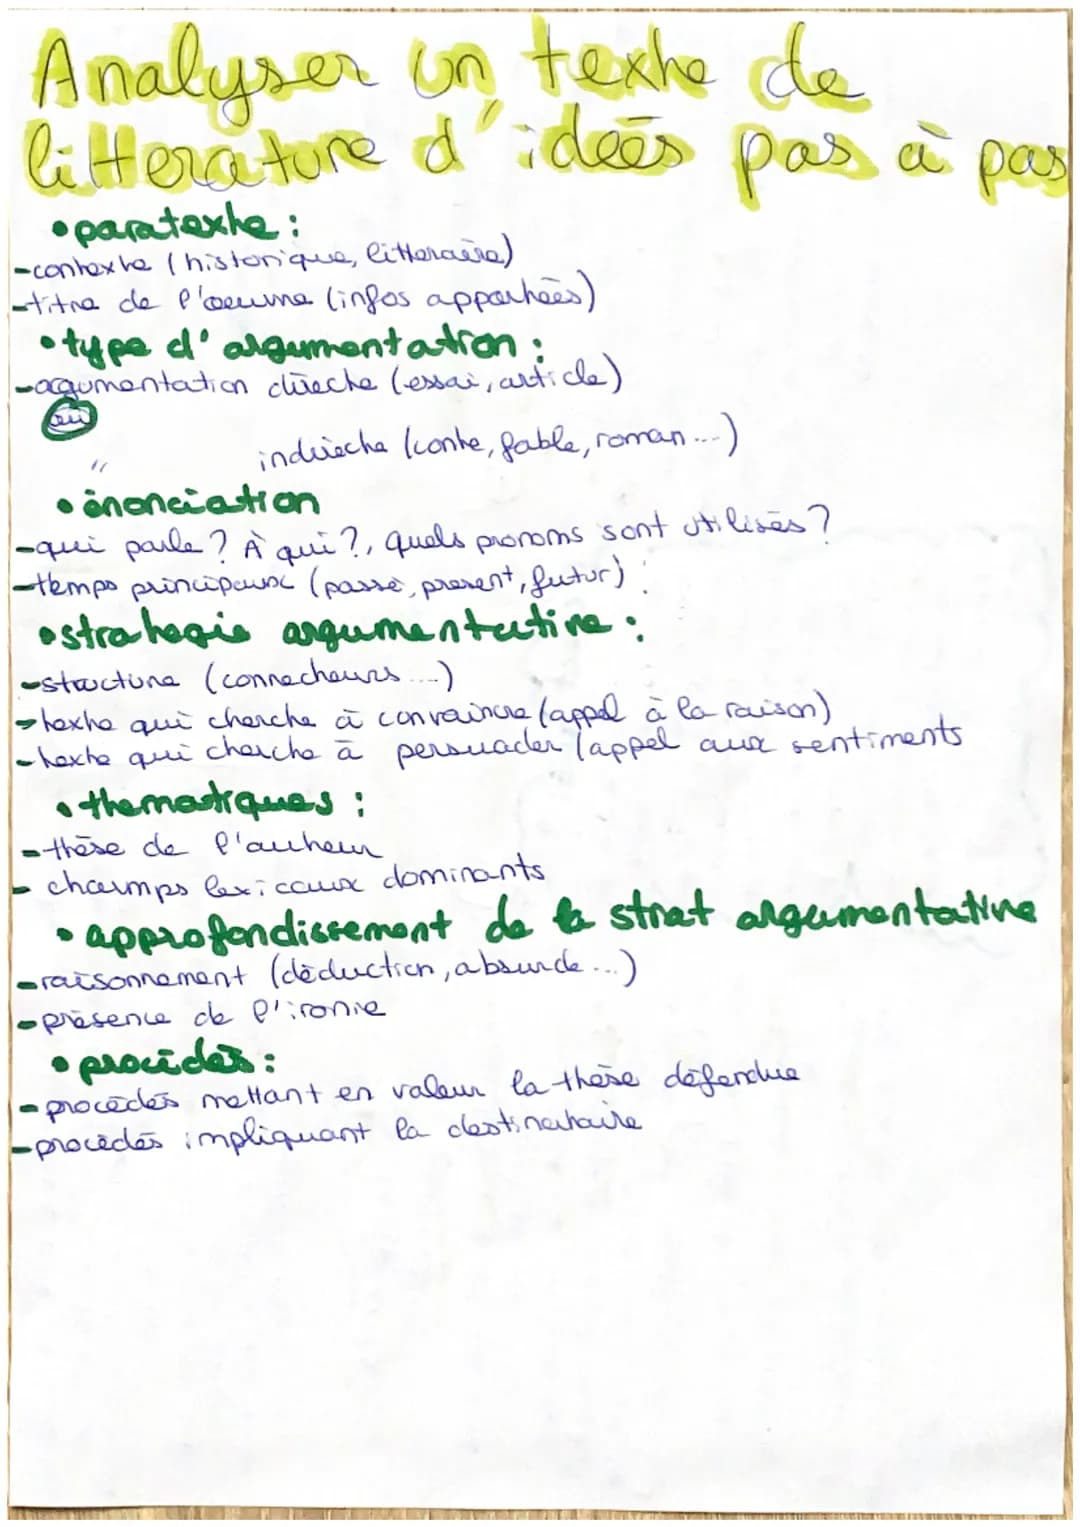 Analyser un texte de
litterature d'ideés pas à pas
• paratexte :
- contexte (historique, litteraire)
- titre de l'oeuvre (infos apporteés)
• type d'argumentation :
- agumentation directe (essai, article)
ou
" indirecte (conte, fable, roman ...)
• énonciation
- qui parle ? À qui ?, quels pronoms sont utilisés ?
- temps principaux (passé, present, futur) :
• strategie argumentative :
- structure (connecteurs ....)
- texte qui cherche à convaincre (appel à la raison)
- texte qui cherche à persuader (appel aux sentiments
• thematiques :
- thèse de l'auteur
- champs lexicaux dominants
• approfondissement de la strat argumentative
- raisonnement (déduction, absurde ...)
- présence de l'ironie
• procédés :
- procédés mettant en valeur la thèse défendue
- procédés impliquant la destinataire